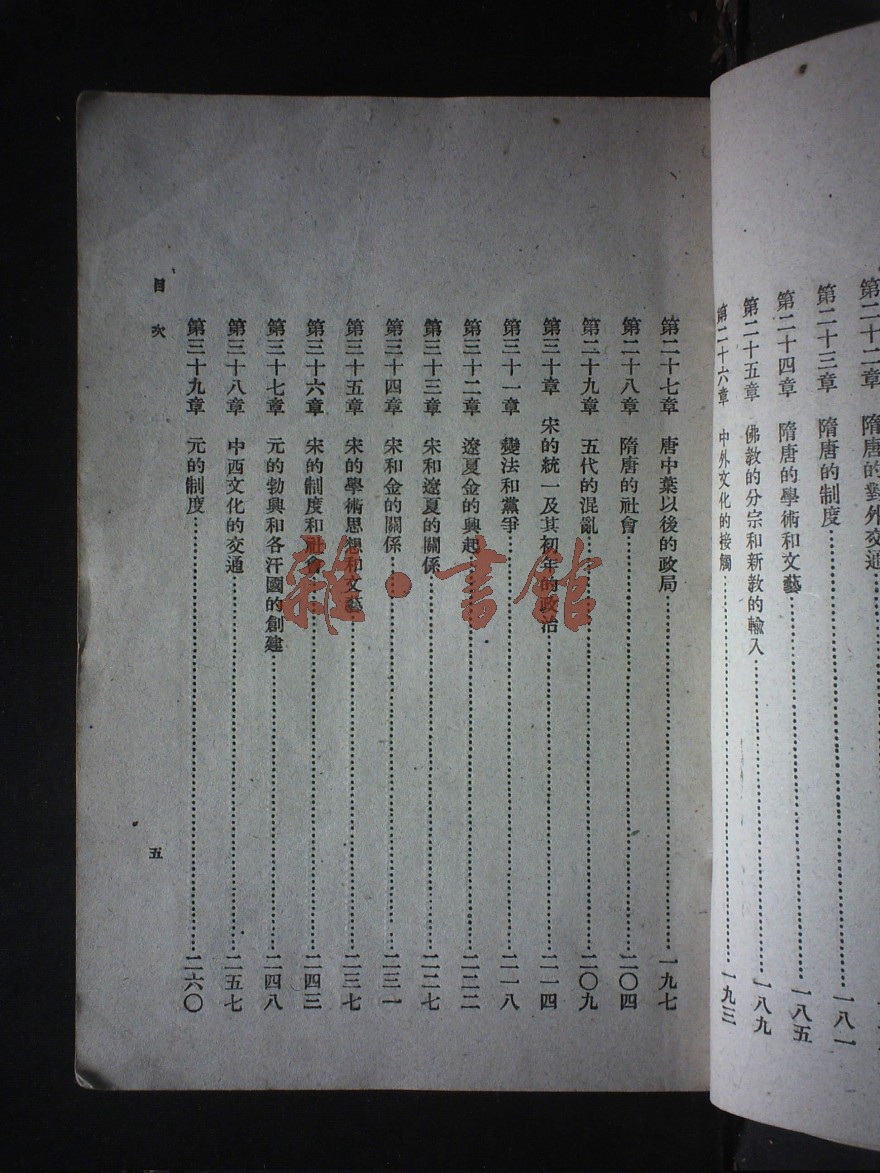 第二十二章　隋唐的對外交通
第二十三章　隋唐的制度……一八一
第二十四章　隋唐的學術和文藝……一八五
第二十五章　佛教的分宗和新教的輸入……一八九
第二十六章　中外文化的接觸……一九三
第二十七章　唐中葉以後的政局……一九七
第二十八章　隋唐的社會……二〇四
第二十九章　五代的混亂……二〇九
第三十章　宋的統一及其初年的政治……二一四
第三十一章　變法和黨爭……二一八
第三十二章　遼夏金的興起……二二二
第三十三章　宋和遼夏的關係……二二七
第三十四章　宋和金的關係……二三一
第三十五章　宋的學術思想和文藝……二三七
第三十六章　宋的制度和社會……二四三
第三十七章　元的勃興和各汗國的創建……二四八
第三十八章　中西文化的交通……二五七
第三十九章　元的制度……二六〇
目次
五
雜·書館